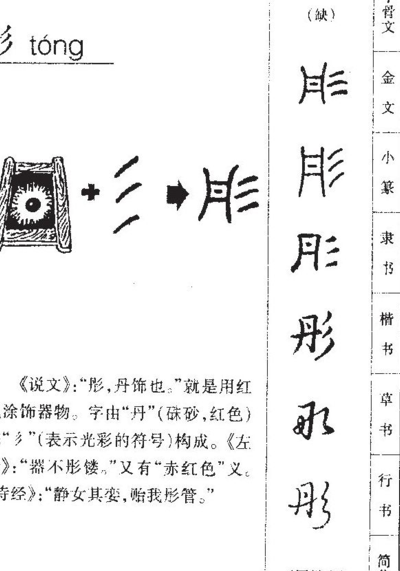 彡 tóng
《说文》:“彤,丹饰也。”就是用红
涂饰器物。字由“丹”(硃砂,红色)
“彡”(表示光彩的符号)构成。《左
》:“器不彤镂。”又有“赤红色”义。
诗经》:“静女其娈,贻我彤管。”
(缺)
彤
彤
彤
彤
彤
彤
骨文
金文
小篆
隶书
楷书
草书
行书
简